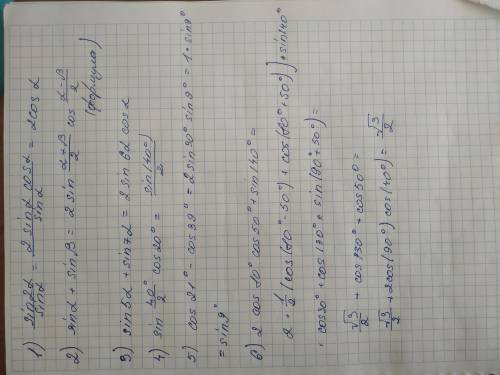 1) sin2α/sinα = 2 sinα cosα/sinα = 2cosα
2) sinα + sinβ = 2 sin (α+β)/2 cos (α-β)/2
(формула)
3) sin5α + sin7α = 2 sin 6α cosα
4) sin 40°/2 cos20° = sin(40°)/2
5) cos 21° - cos 39° = 2 sin30° sin9° = 1 · sin9°
= sin9°
6) 2 cos 80° cos50° + sin140° =
2 · 1/2 (cos(80°-50°) + cos(80°+50°)) + sin140°
cos30° + cos130° + sin(90+50°) =
√3/2 + cos130° + cos50° =
√3/2 + 2cos(90°) cos(40°) = √3/2